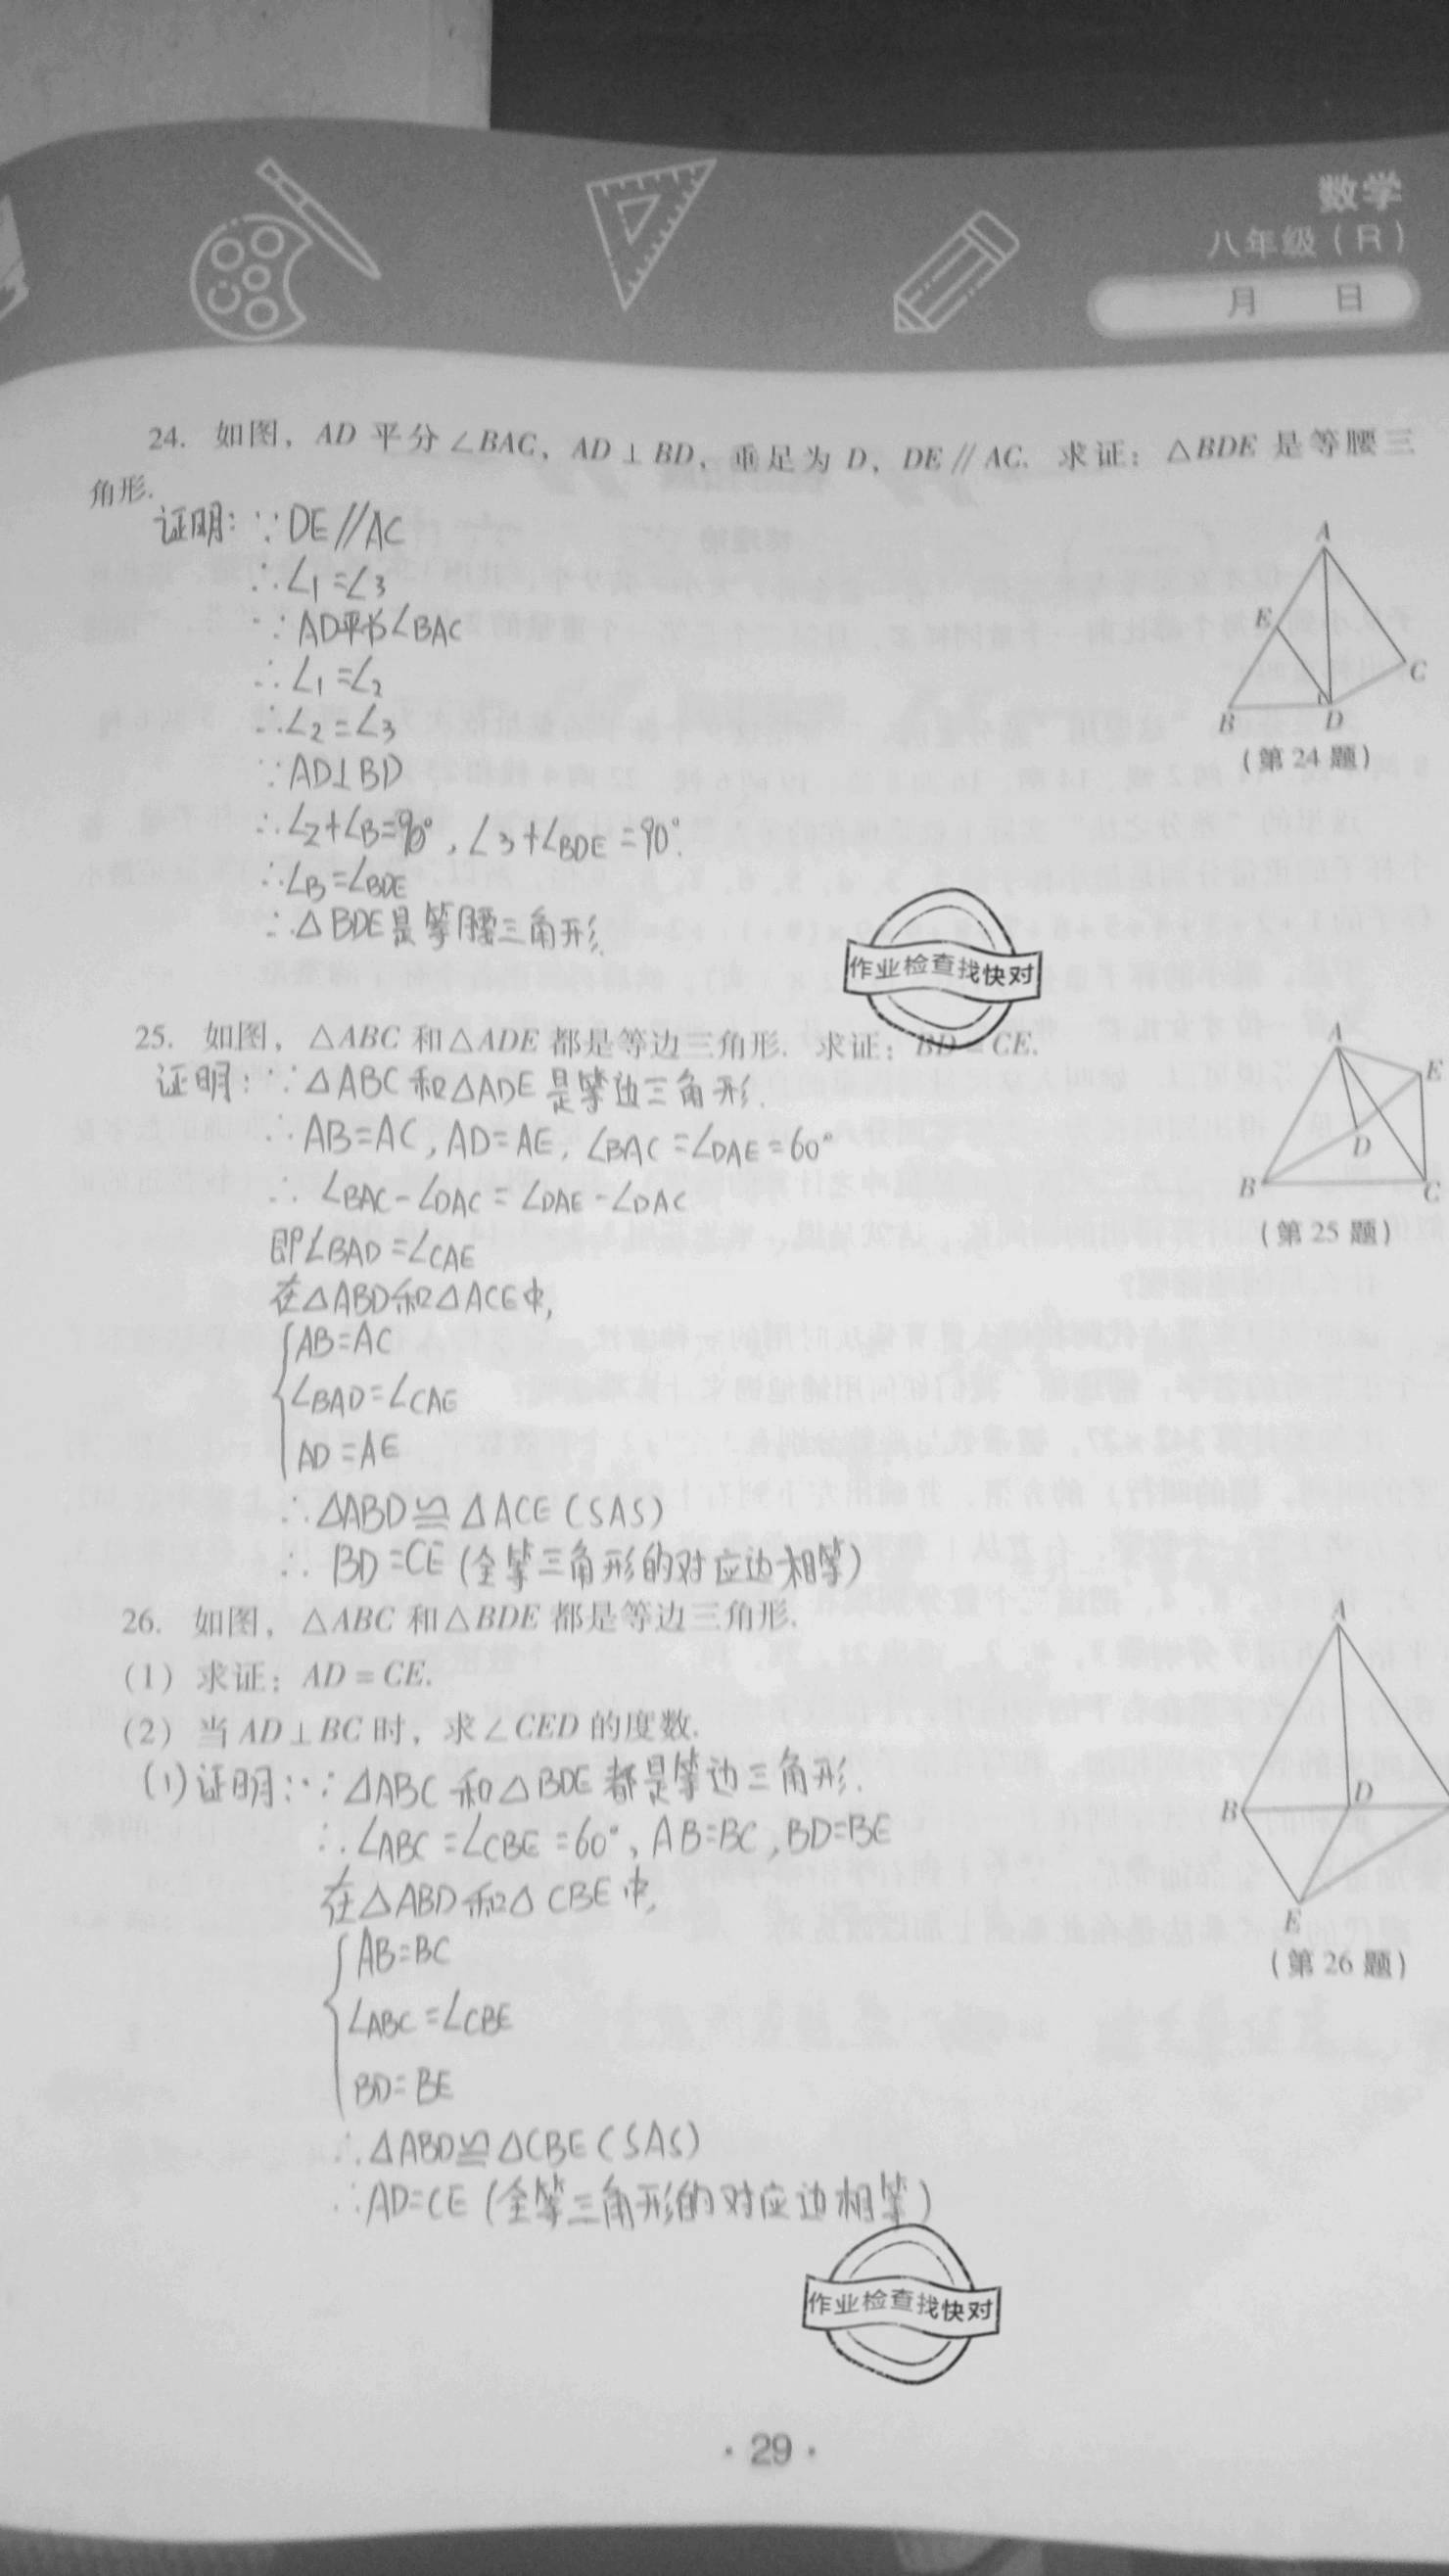 数学
八年级（R）
月 日
24. 如图，AD 平分∠BAC，AD⊥BD，垂足为 D，DE∥AC. 求证：△BDE 是等腰三
角形.
证明：∵DE∥AC
∴∠1=∠3
∵AD平分∠BAC
∴∠1=∠2
∴∠2=∠3
∵AD⊥BD
∴∠2+∠B=90°，∠3+∠BDE=90°.
∴∠B=∠BDE
∴△BDE是等腰三角形.
A
E
C
B
D
（第24题）
作业检查找快对
25. 如图，△ABC 和△ADE 都是等边三角形. 求证：BD=CE.
证明：∵△ABC和△ADE是等边三角形.
∴AB=AC，AD=AE，∠BAC=∠DAE=60°
∴∠BAC-∠DAC=∠DAE-∠DAC
即∠BAD=∠CAE
在△ABD和△ACE中,
AB=AC
∠BAD=∠CAE
AD=AE
∴△ABD≌△ACE(SAS)
∴BD=CE(全等三角形的对应边相等)
A
E
D
B
C
（第25题）
26. 如图，△ABC 和△BDE 都是等边三角形.
（1）求证：AD=CE.
（2）当AD⊥BC时，求∠CED的度数.
(1)证明：∵△ABC和△BDE都是等边三角形.
∴∠ABC=∠CBE=60°，AB=BC，BD=BE
在△ABD和△CBE中,
AB=BC
∠ABC=∠CBE
BD=BE
∴△ABD≌△CBE(SAS)
∴AD=CE(全等三角形的对应边相等)
A
B
D
E
（第26题）
作业检查找快对
·29·